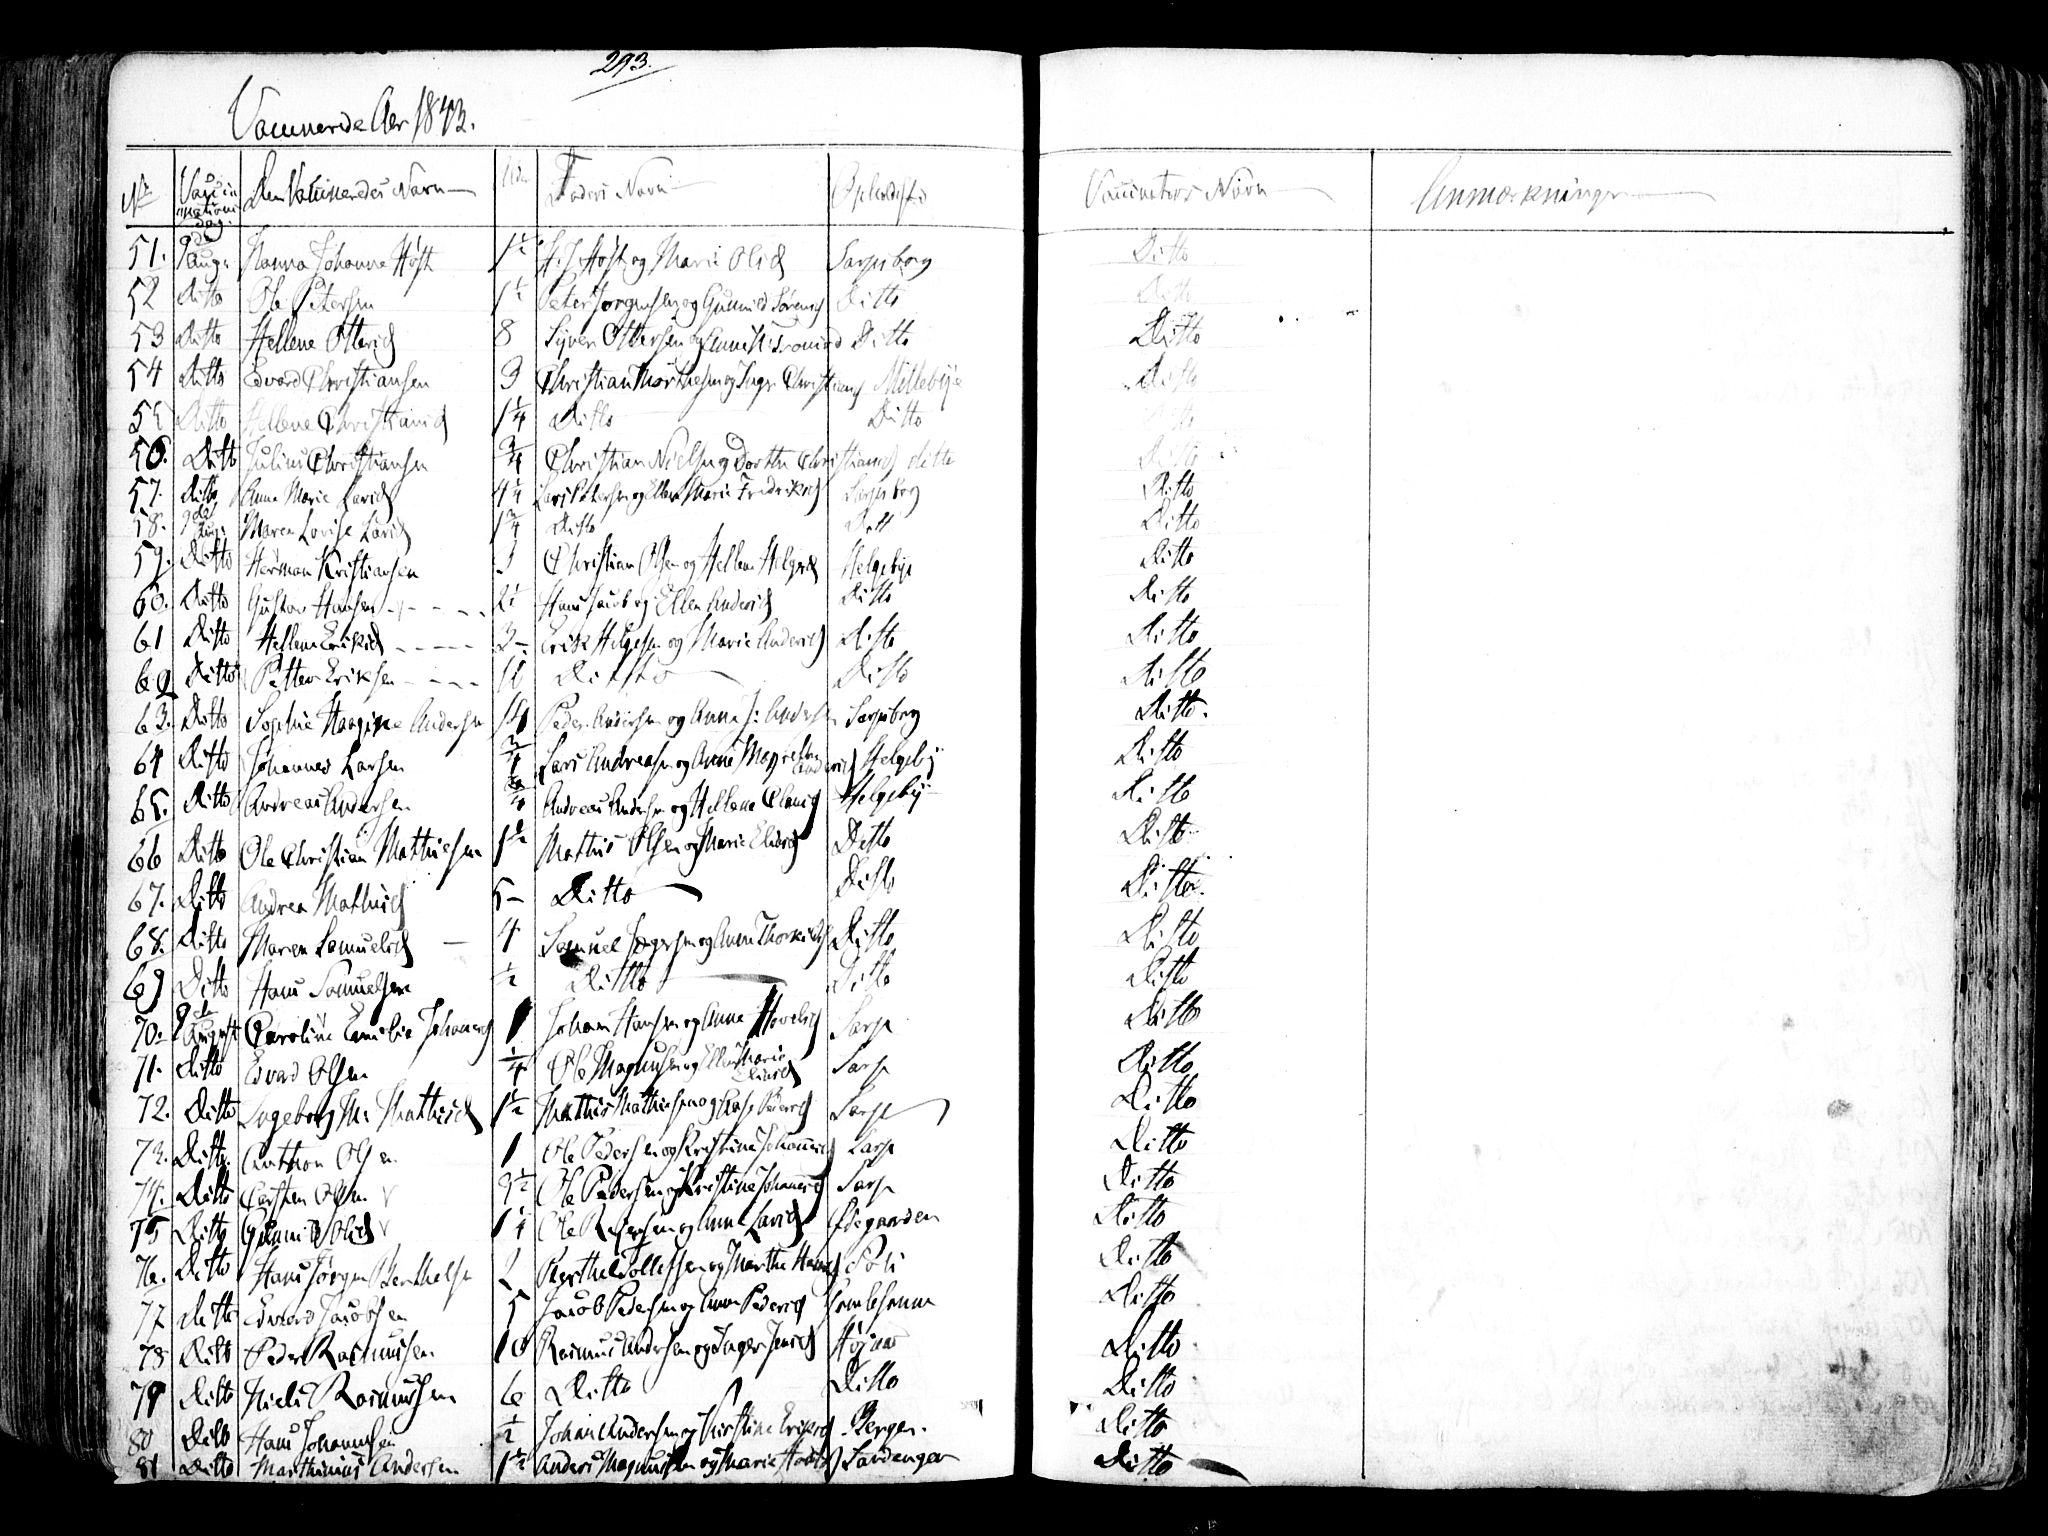 293.
Vaccinerede Aar 1843.
No Vaccinationsdag Den Vaccineredes Navn Alder Faders Navn Opholdssted Vaccinators Navn Anmærkninger
51. 9de Augs Hanna Johanne Høst 1½ H. J. Høst og Marie Olsd Sarpsborg Ditto
52 Ditto Ole Petersen 1½ Peter Jørgensen og Gunnild Sørensd Ditto Ditto
53 Ditto Hellene Ottersd 8 Syver Ottersen og Ditto Ditto
54 Ditto Edvard Christiansen 3 Christian Morthesen og Inger Christiansd Millebye Ditto
55 Ditto Hellene Christiansd 1¼ Ditto Ditto Ditto
56. Ditto Julius Christiansen ¾ Christian Nielsen og Dorthe Christiansd ditto Ditto
57. Ditto Anne Marie Larsd 4¼ Lars Petersen og Ellen Marie Fredriksd Sarpsborg Ditto
58. 9de Augs Maren Lovise Larsd 1¾ Ditto Ditt Ditto
59. Ditto Herman Kristiansen Christian Olsen og Hellene Helgesd Helgebye Ditto
60. Ditto Gustav Hansen 2½ Hans Jacob og Ellen Andersd Ditto Ditto
61 Ditto Hellene Eriksd 3 Erik Helgesen og Marie Andersd Ditto Ditto
62 Ditto Petter Eriksen Ditto Ditto Ditto
63. Ditto Sophie Andersen 14 Peder Andersen og Anne J: Andersen Sarpsborg Ditto.
64 Ditto Johannes Larsen ¾ Lars Andreasen og Anne Magrethe Andersd Helgeby Ditto
65. Ditto Andreas Andersen ¾ Andreas Andersen og Hellene Olausd Helgeby Ditto
66 Ditto Ole Christian Mathiesen 1½ Mathis Olsen og Marie Eliasd Ditto Ditto
67. Ditto Andrea Mathisd 5 Ditto Ditto Ditto.
68. Ditto Maren Samuelsd 4 Samuel og Anne Thorkildsd Ditto Ditto
69 Ditto Hans Samuelsen ½ Ditto Ditto Ditto
70. 9de August Caroline Emilie Johansd 1 Johan Hansen og Anne Sarp Ditto
71. Ditto Edvard Olsen ¼ Ole Magnusen og Ellen Marie Eliasd Sarp Ditto
72. Ditto Ingeborg M: Mathisd 1½ Mathis Mathiesen og Pedersd Sarp Ditto
73. Ditto Anthon Olsen 1 Ole Pedersen og Kristine Johannesd Sarp Ditto
74. Ditto Carsten Olsen 3½ Ole Pedersen og Kristine Johannesd Sarp Ditto
75 Ditto Gunnild Olsd 1¼ Ole og Anne Larsd Ødegaarden Ditto
76. Ditto Hans Jørgen Berthelsen 2 Berthel Tollefsen og Marthe Hansd Ditto
77 ditto Edvard Jacobsen 5 Jacob Pedersen og Anne Pedersd Ditto
78 Ditto Peder Rasmussen 10 Rasmus Andersen og Inger Jensd Ditto
79 Ditto Niels Rasmussen 6 Ditto Ditto Ditto
80 Ditto Hans Johannesen ½ Johan Andersen og Kirstine Eriksd Bergen. Ditto
81 Ditto Marthinius Andersen 1½ Anders Magnusen og Marie Sandengen Ditto